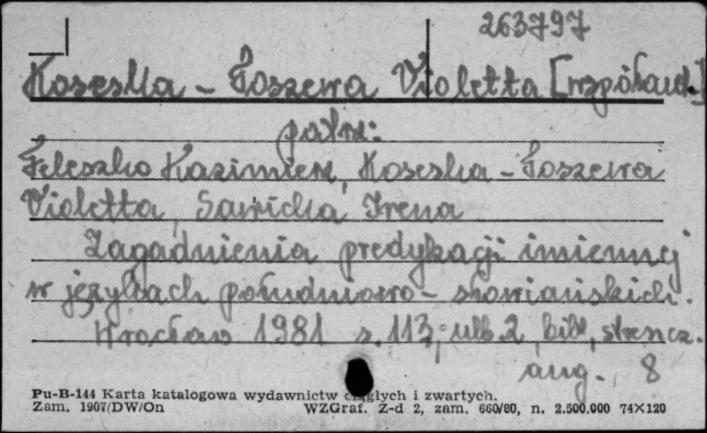 263797
Koseska - Toszewa Violetta [współaut.]
patrz:
Feleszko Kazimierz, Koseska - Toszewa
Violetta, Sawicka Irena
Zagadnienia predykacji imiennej
w językach południowo - słowiańskich.
Wrocław 1981 s. 113, nlb. 2, bibl., streszcz.
ang., 8
Pu-B-144 Karta katalogowa wydawnictw ciągłych i zwartych.
Zam. 1907/DW/On WZGraf. Z-d 2, zam. 660/80, n. 2.500.000 74×120